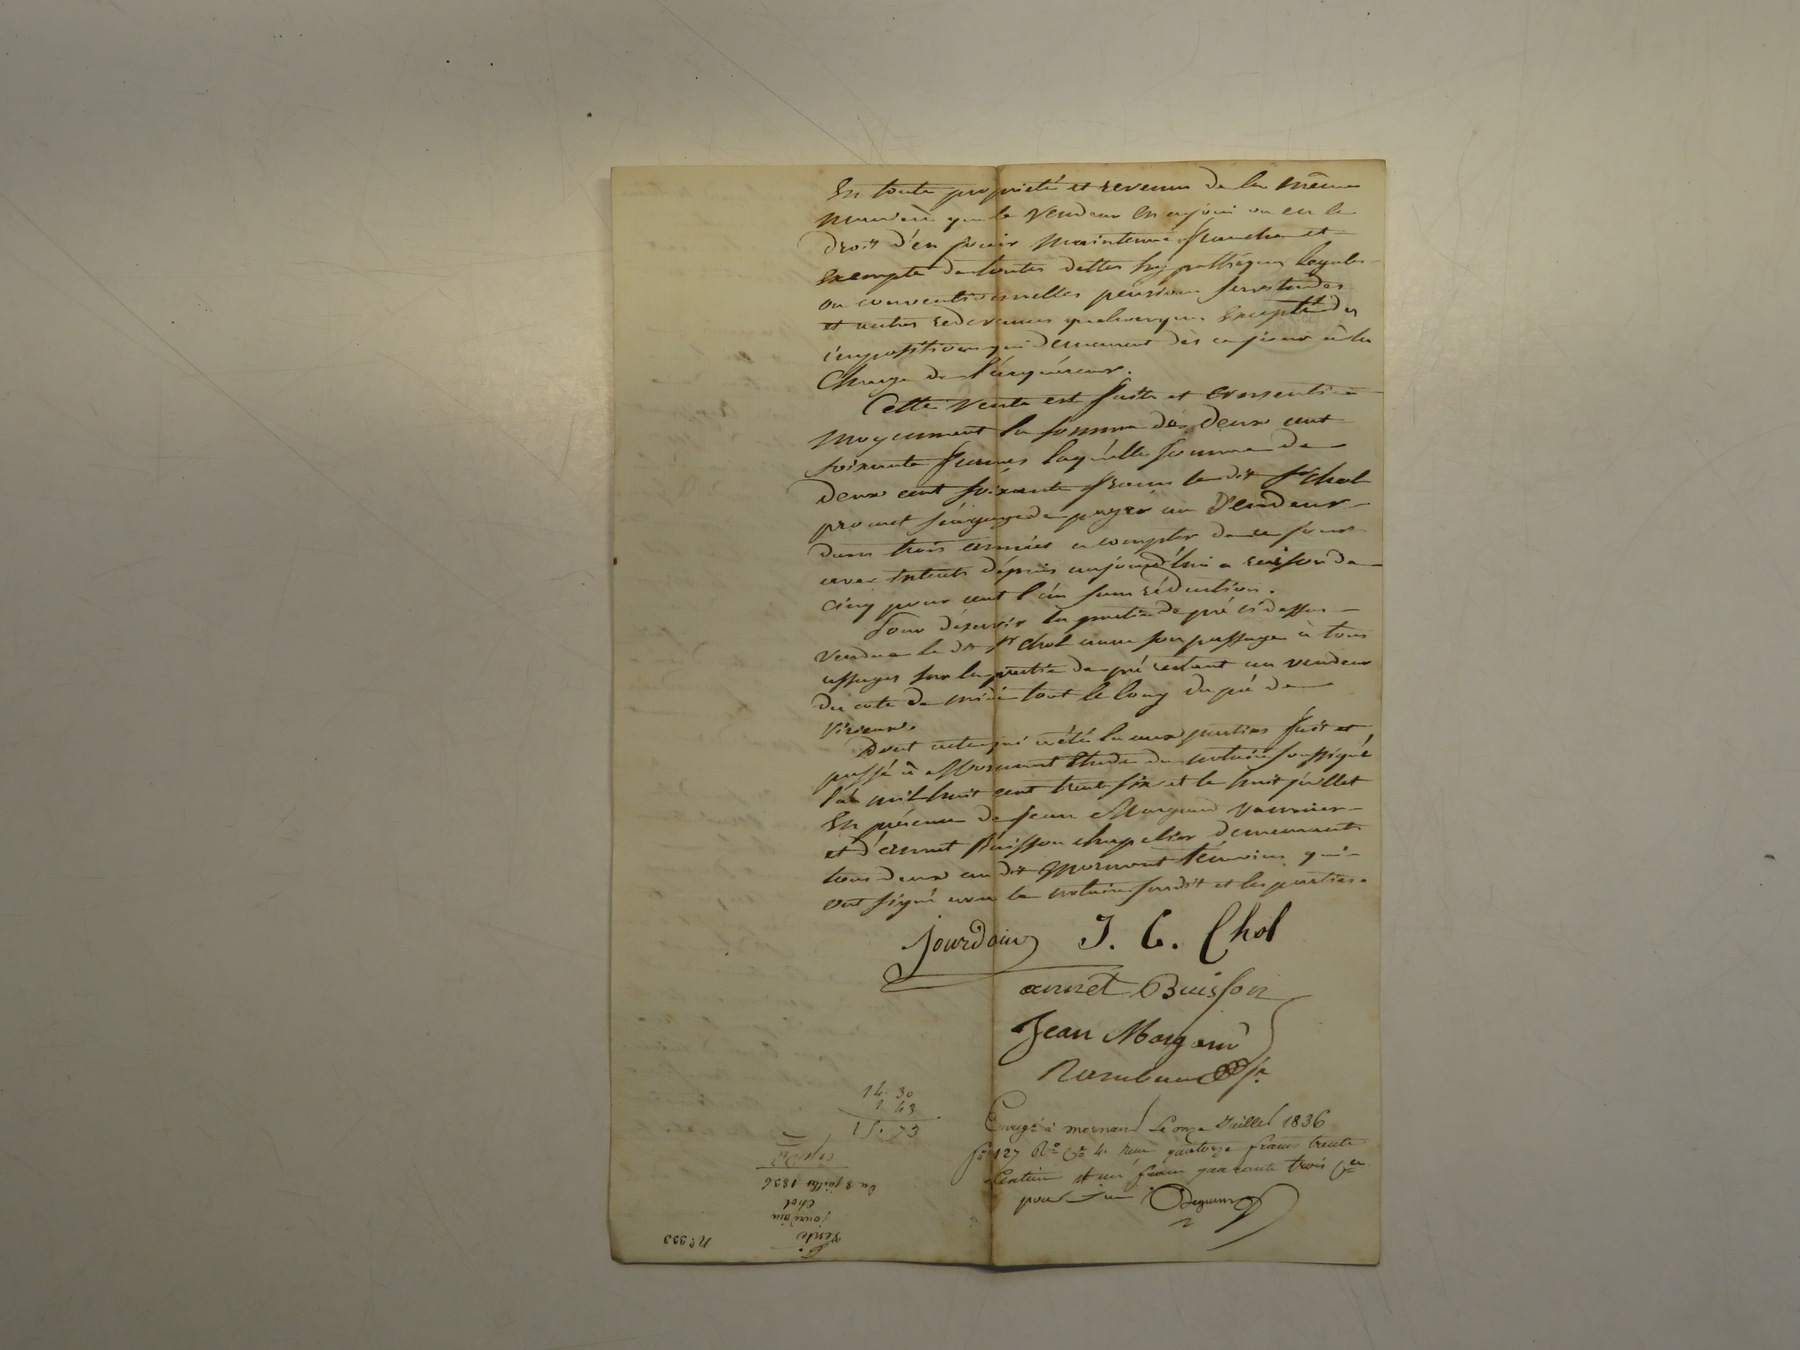 En toute propriété et revenu de la même
manière que le vendeur en a joui ou eu le
droit d'en jouir maintenue franche et
exempte de toutes dettes hypothèques legales
ou conventionnelles pensions servitudes
et autres redevances quelconques excepté des
impositions qui demeurent dès ce jour à la
Charge de l'acquéreur.
Cette vente est faite et consentie
moyennant la somme de deux cent
soixante francs laquelle somme de
deux cent soixante francs le dit Sr Chol
promet s'engage de payer au vendeur
dans trois années a compter de ce jour
avec intérêts depuis aujourd'hui a raison de
cinq pour cent l'an sans réduction.
Pour déservir la partie de pré ci dessus
vendue le dit Sr Chol aura son passage à tous
usages sur la partie de pré restant au vendeur
du coté de midi tout le long du pré de
Virieux.
Dont acte qui a été lu aux parties fait et
passé à Mornant Etude du notaire soussigné
l'an mil huit cent trente six et le huit juillet
En présence de Jean Margand
et d'annet Buisson chapelier demeurants
tous deux au dit Mornant témoins qui
ont signé avec le notaire susdit et les parties.
Jourdain J. C. Chol
annet Buisson
Jean Margand
14. 30
1. 43
15. 73
Enregé à mornant Le onze Juillet 1836
fo 127 Ro Ce 4. Reçu quatorze francs trente
Centimes et un franc quarante trois ces
pour
Nº 333
Vente
jourdain
Chol
Du 8 juillet 1836